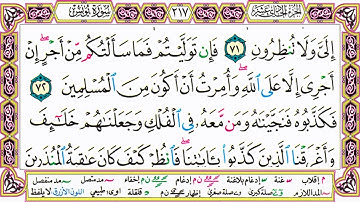 سورة يونس ٢١٧ الجزء الحادي عشر
إِلَىَّ وَلَا تُنظِرُونِ ٧١ فَإِن تَوَلَّيْتُمْ فَمَا سَأَلْتُكُم مِّنْ أَجْرٍ إِنْ
أَجْرِىَ إِلَّا عَلَى ٱللَّهِ وَأُمِرْتُ أَنْ أَكُونَ مِنَ ٱلْمُسْلِمِينَ ٧٢
فَكَذَّبُوهُ فَنَجَّيْنَٰهُ وَمَن مَّعَهُۥ فِى ٱلْفُلْكِ وَجَعَلْنَٰهُمْ خَلَٰٓئِفَ
وَأَغْرَقْنَا ٱلَّذِينَ كَذَّبُوا۟ بِـَٔايَٰتِنَا فَٱنظُرْ كَيْفَ كَانَ عَٰقِبَةُ ٱلْمُنذَرِينَ